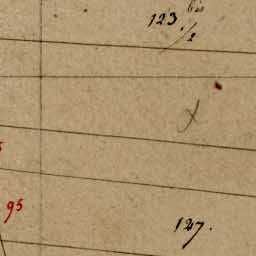 123. bis
1/2
x
95
127.